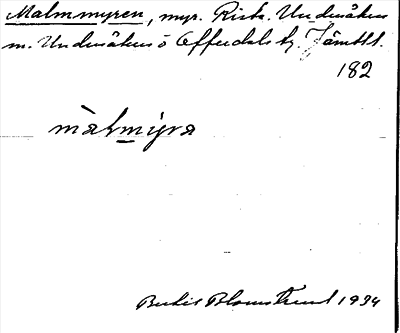 Malmmyren, myr. Rista. Undersåkers
m. Undersåkers o Offerdals tg. Jämtl.
182
màlmy̲ra
Bertil Blomstrand 1934